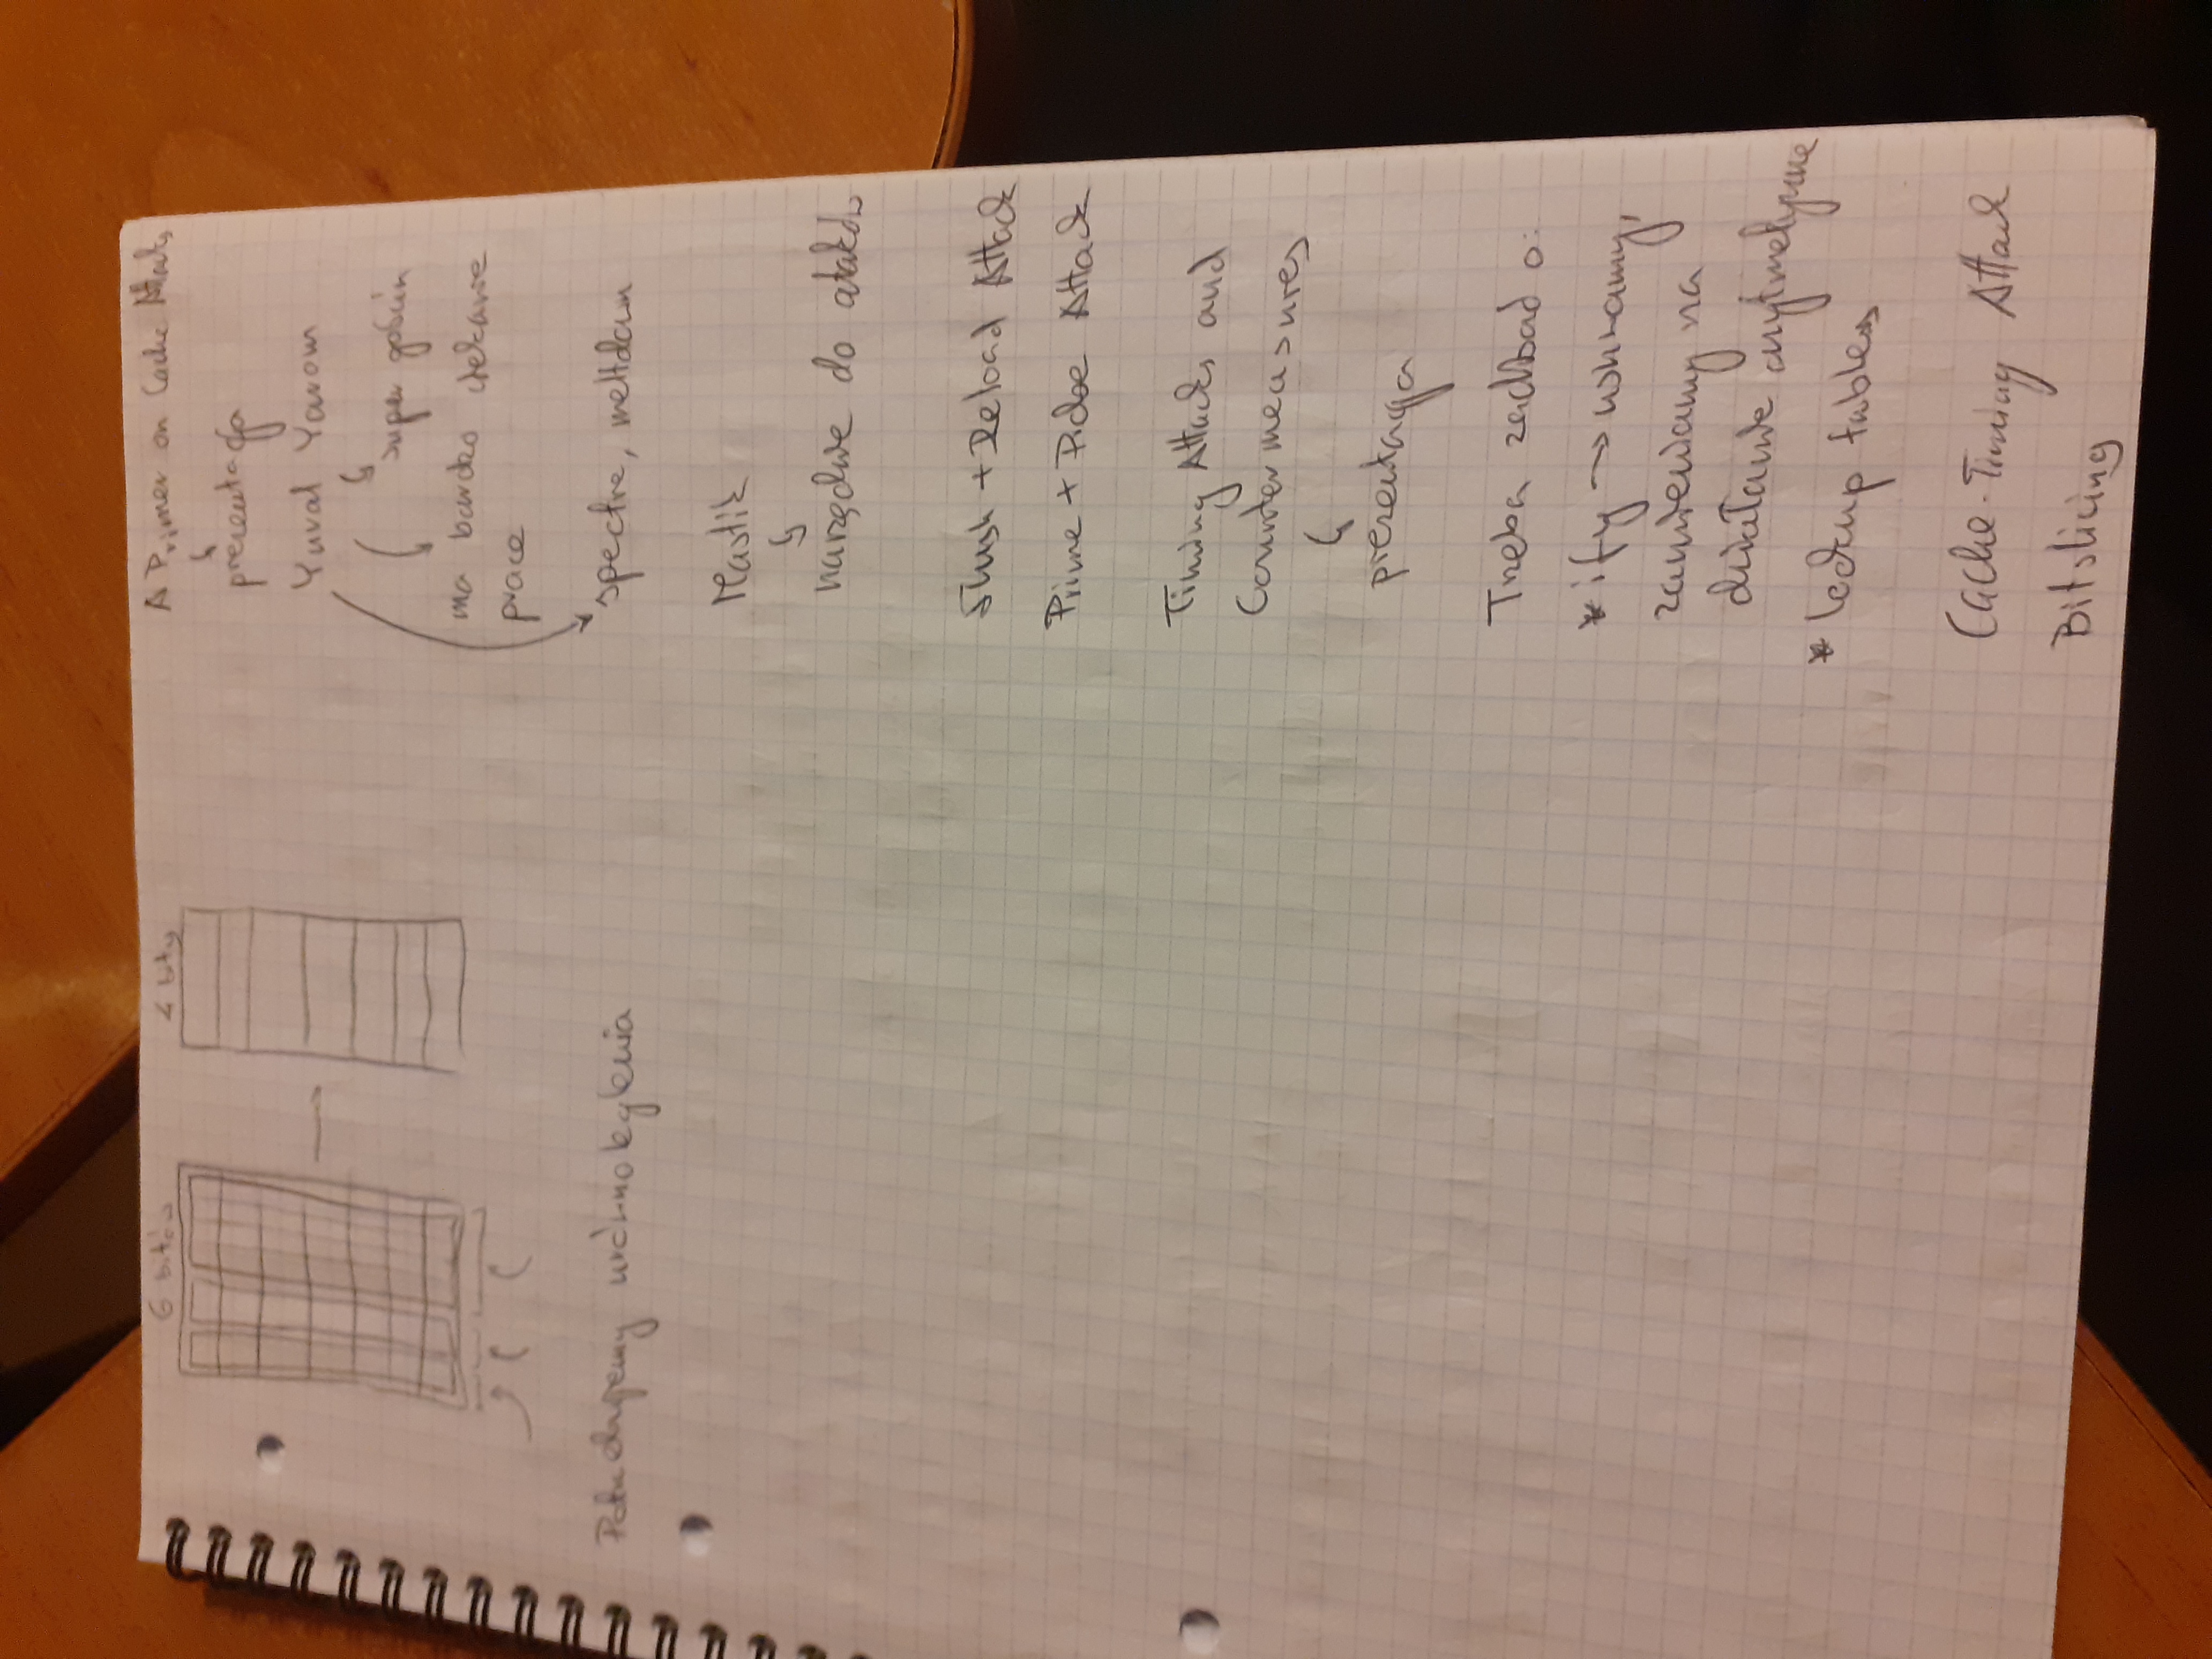 6 bitów
4 bity
Potrzebujemy urównoleglenia
A Primer on Cache Attacks
prezentacja
Yuval Yarom
super gościu
ma bardzo ciekawe
prace
spectre, meltdown
Mastik
narzędzie do ataków
Flush + Reload Attack
Prime + Probe Attack
Timing Attacks and
Countermeasures
prezentacja
Trzeba zadbać o:
* ify → usuwamy,
zamieniamy na
działanie arytmetyczne
* lookup tables
Cache-Timing Attack
Bitslicing